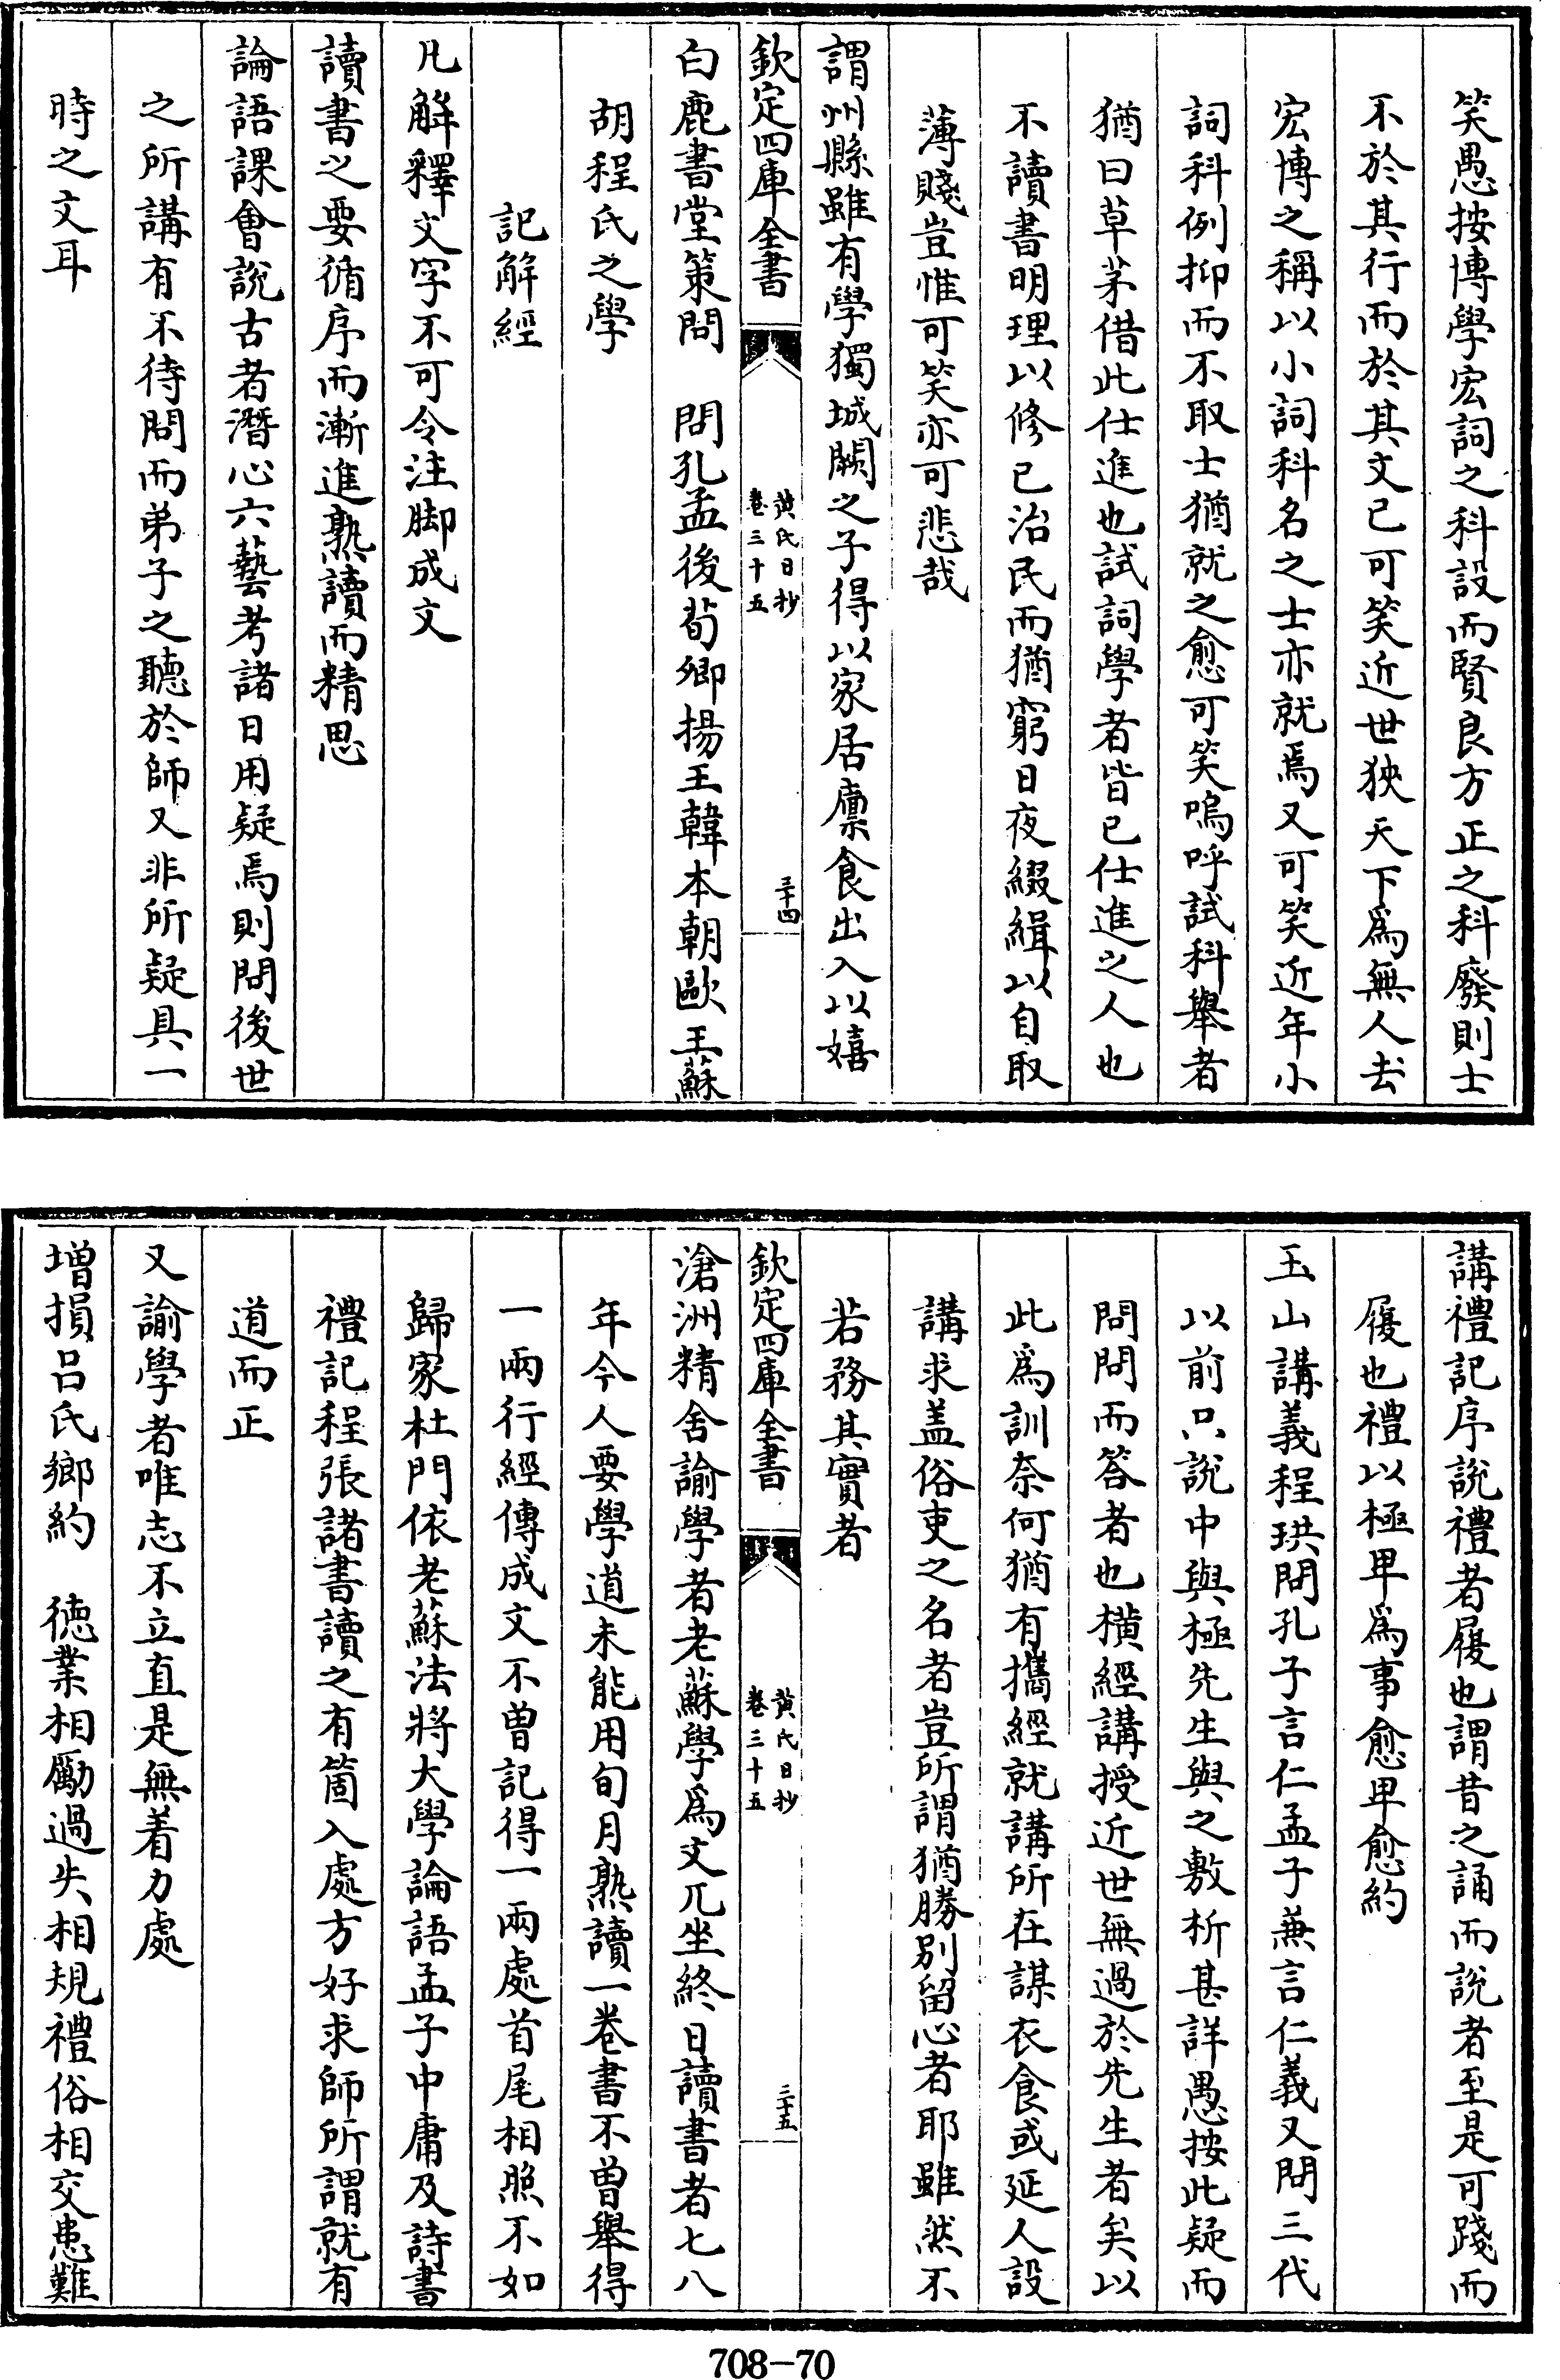 笑愚按博學宏詞之科設而賢良方正之科廢則士
不於其行而於其文已可笑近世狹天下爲無人去
宏博之稱以小詞科名之士亦就焉又可笑近年小
詞科例抑而不取士猶就之愈可笑嗚呼試科舉者
猶曰草茅借此仕進也試詞學者皆已仕進之人也
不讀書明理以修已治民而猶窮日夜綴緝以自取
薄賤豈惟可笑亦可悲哉
謂州縣雖有學獨城闕之子得以家居廩食出入以嬉
欽定四庫全書
黃氏日抄
卷三十五
三十四
白鹿書堂策問　問孔孟後荀卿揚王韓本朝歐王蘇
胡程氏之學
記解經
凡解釋文字不可令注脚成文
讀書之要循序而漸進熟讀而精思
論語課會說古者潛心六藝考諸日用疑焉則問後世
之所講有不待問而弟子之聽於師又非所疑具一
時之文耳
講禮記序說禮者履也謂昔之誦而說者至是可踐而
履也禮以極卑爲事愈卑愈約
玉山講義程珙問孔子言仁孟子兼言仁義又問三代
以前只說中與極先生與之敷析甚詳愚按此疑而
問問而答者也橫經講授近世無過於先生者矣以
此爲訓奈何猶有攜經就講所在謀衣食或延人設
講求盖俗吏之名者豈所謂猶勝別留心者耶雖然不
若務其實者
欽定四庫全書
黃氏日抄
卷三十五
三十五
滄洲精舍諭學者老蘇學爲文兀坐終日讀書者七八
年今人要學道未能用旬月熟讀一卷書不曾舉得
一兩行經傳成文不曾記得一兩處首尾相照不如
歸家杜門依老蘇法將大學論語孟子中庸及詩書
禮記程張諸書讀之有箇入處方好求師所謂就有
道而正
又諭學者唯志不立直是無着力處
增損呂氏鄉約　德業相勵過失相規禮俗相交患難
708-70